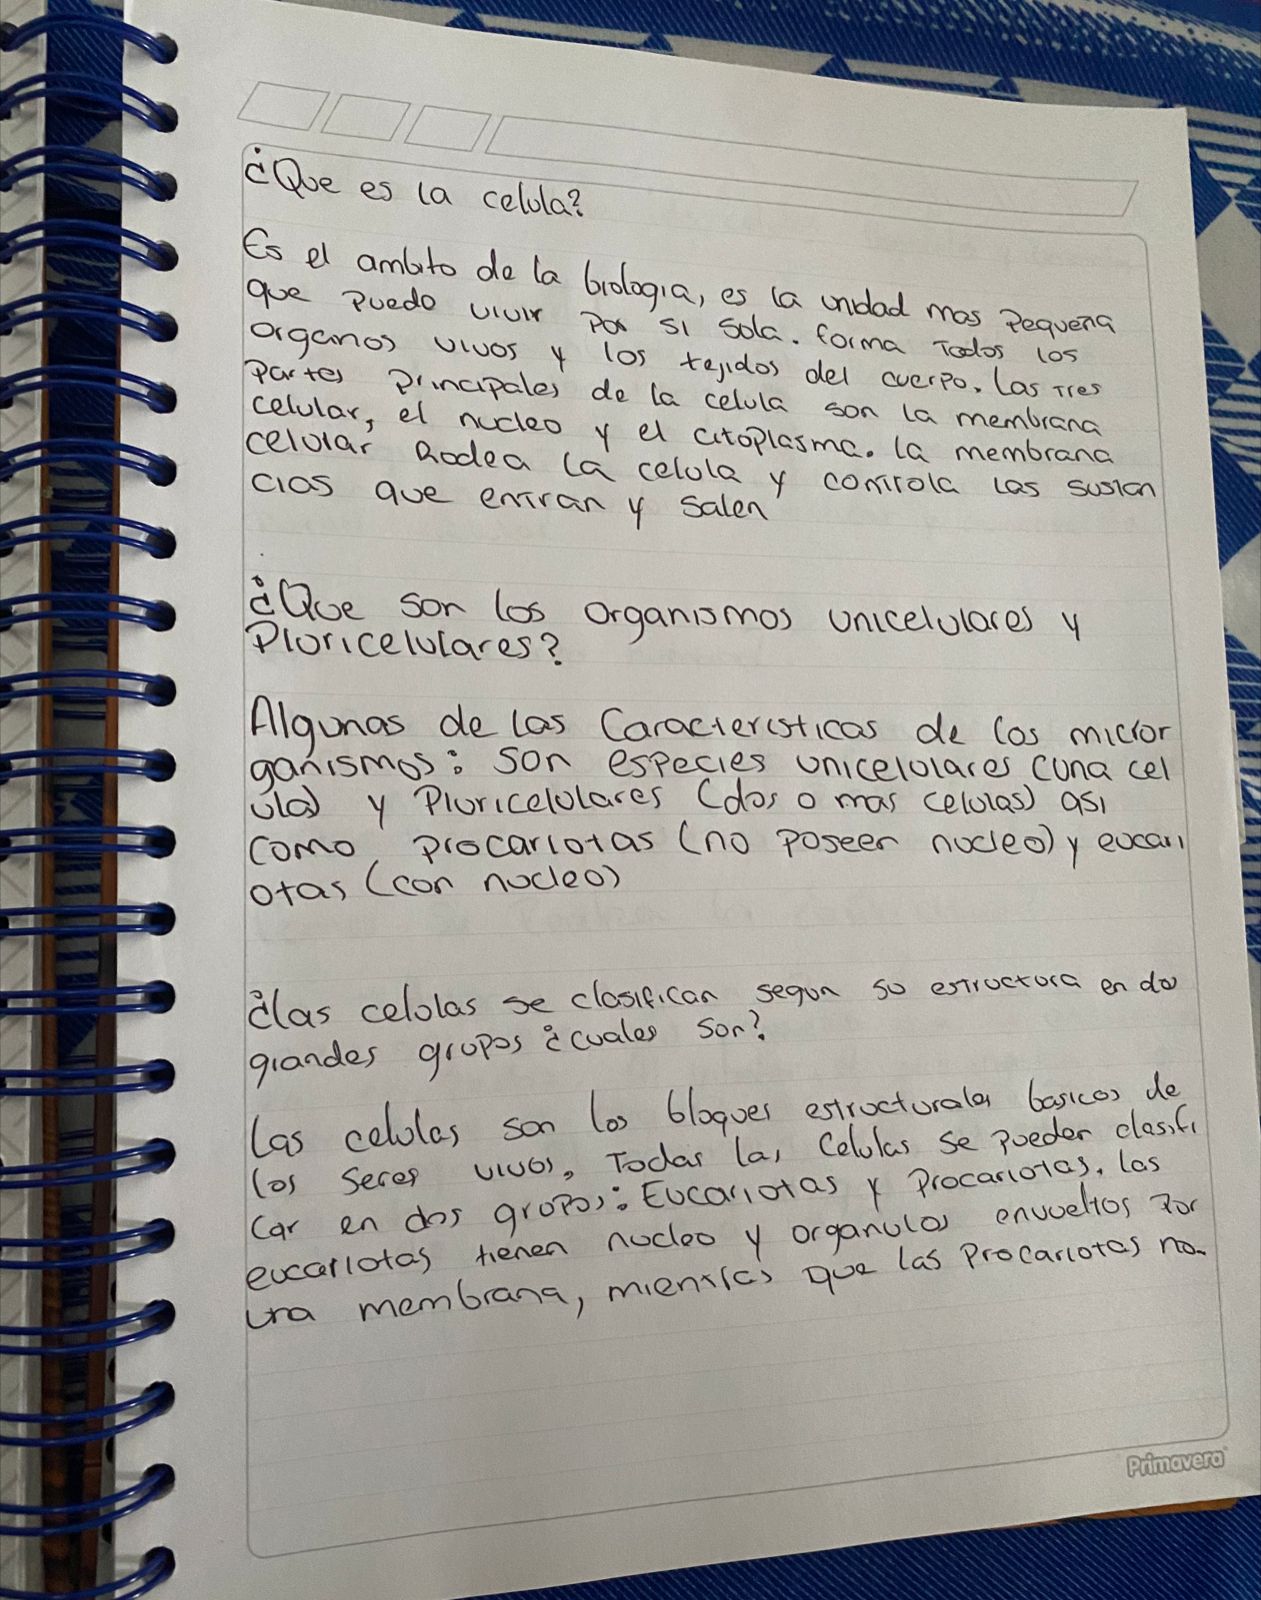 ¿Que es la celula?
Es el ambito de la biologia, es la unidad mas Pequeña
que Puedo vivir Por si sola. forma Todos los
organos vivos y los tejidos del cuerpo. Las Tres
Partes Principales de la celula son la membrana
celular, el nucleo y el citoplasma. la membrana
celular Rodea la celula y controla las sustan
cias que entran y salen
¿Que son los organismos unicelulares y
Pluricelulares?
Algunas de las Caracteristicas de los micror
ganismos: Son especies unicelulares (una cel
ula) y Pluricelulares (dos o mas celulas) asi
como Procariotas (no Poseen nucleo) y eucari
otas (con nucleo)
¿las celulas se clasifican segun su estructura en dos
grandes grupos ¿cuales son?
Las celulas son los bloques estructurales basicos de
los seres vivos. Todas las Celulas se pueden clasifi
car en dos grupos: Eucariotas y Procariotas. las
eucariotas tienen nucleo y organulos envueltos Por
una membrana, mientras que las Procariotas no.
Primavera